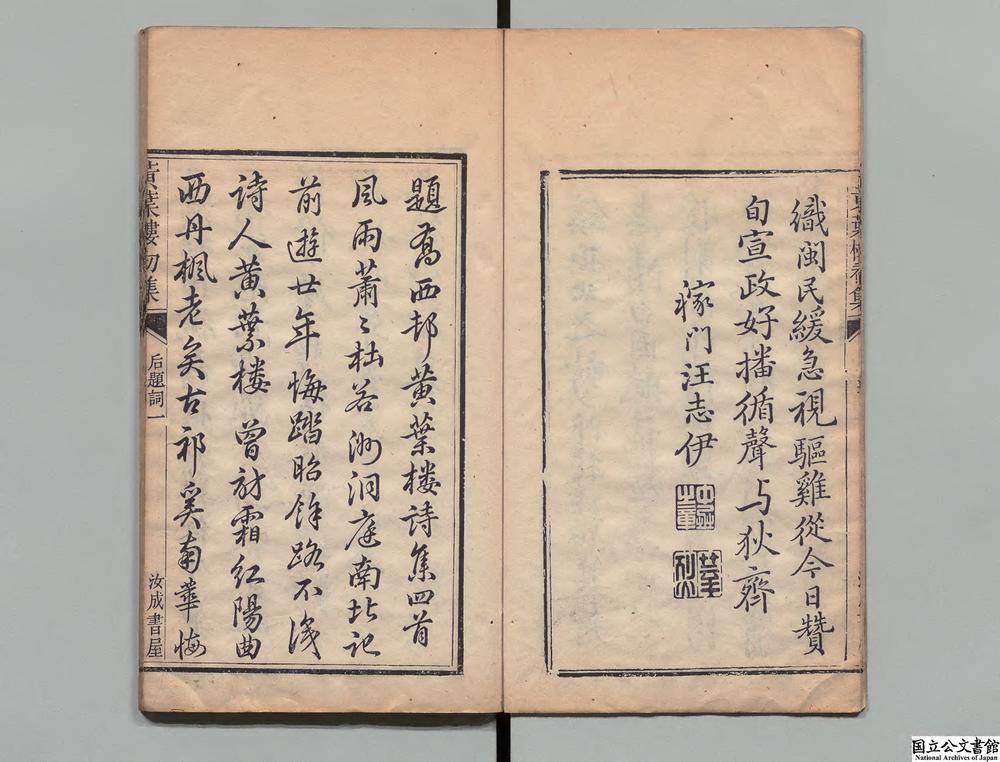 織閩民緩急視驅雞從今日贊
旬宣政好播循聲与狄齊
稼門汪志伊
題喬西邨黄葉楼詩集四首
風雨蕭〻杜若洲洞庭南北記
前遊廿年悔踏昭餘路不識
詩人黄葉楼曾訪霜紅陽曲
西丹楓老矣古祁奚南華悔
黃葉樓初集
后題詞一
汝成書屋
国立公文書館
National Archives of Japan